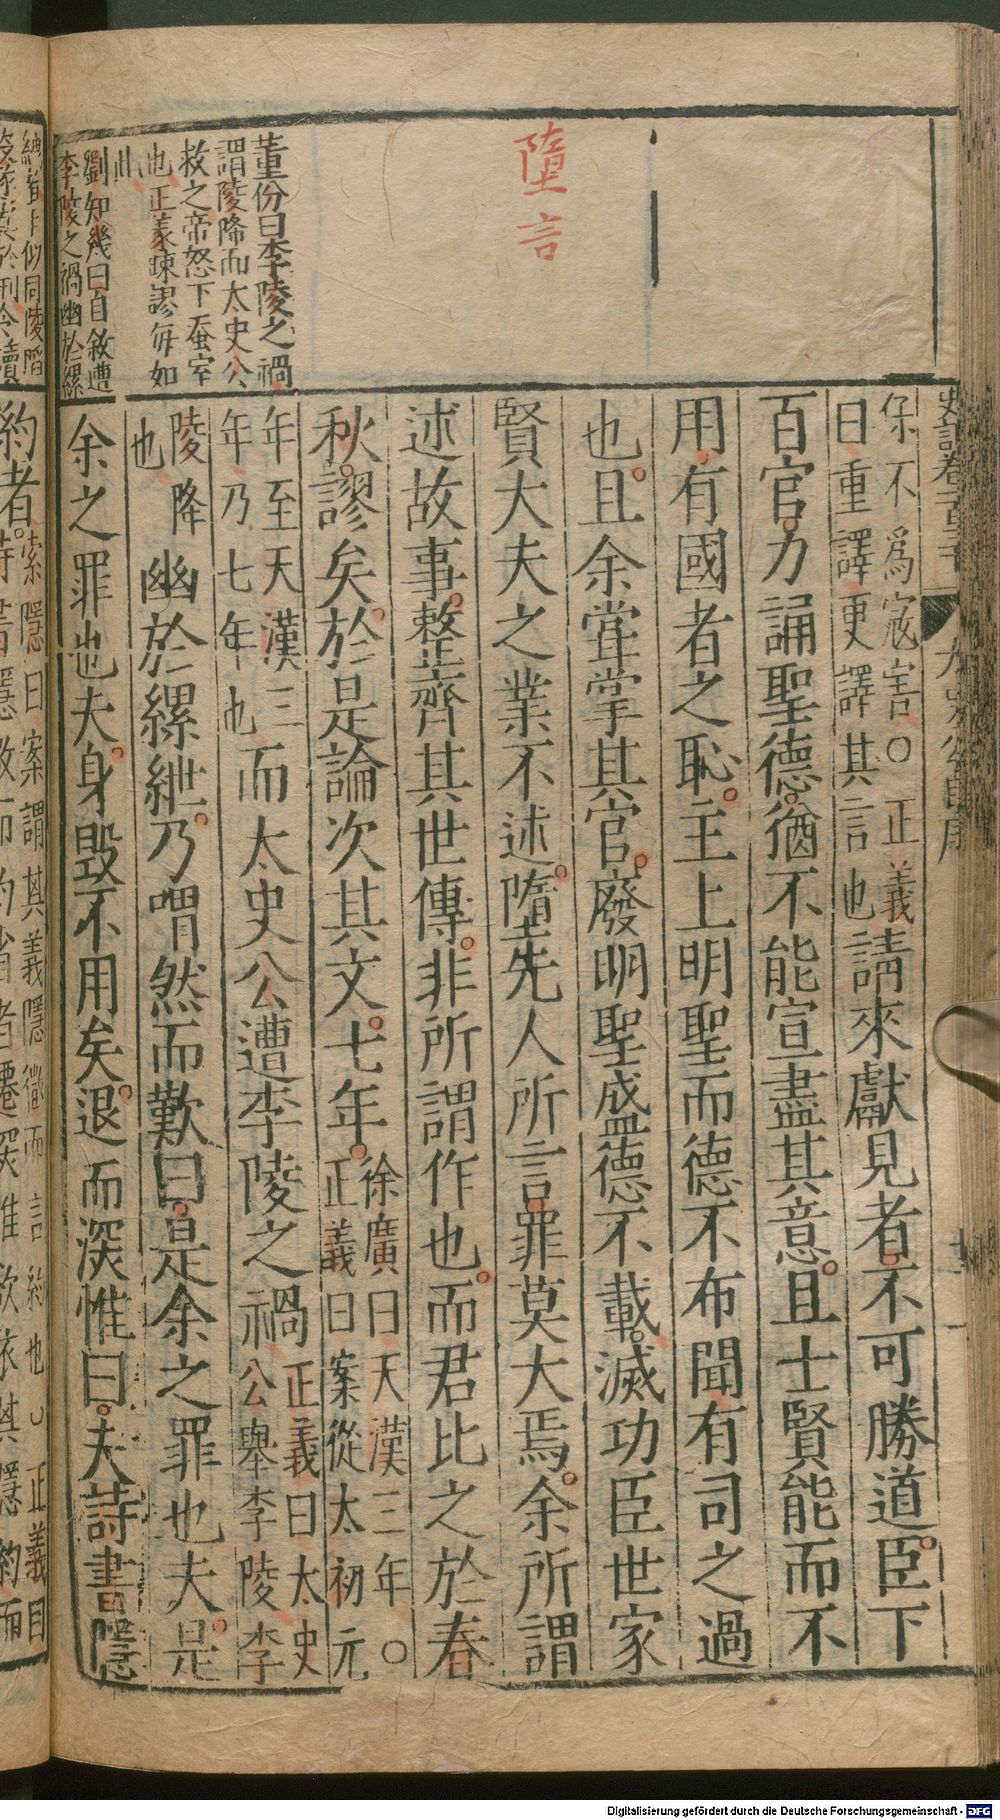 墮言
董份曰李陵之禍
謂陵降而太史公
救之帝怒下蚕室
也正義踈謬每如
此
劉知幾曰自敘遭
李陵之禍幽於縲
史記卷一百三十
太史公自序
保不爲寇害○正義
曰重譯更譯其言也
請來獻見者不可勝道臣下
百官力誦聖德猶不能宣盡其意且士賢能而不
用有國者之恥主上明聖而德不布聞有司之過
也且余甞掌其官廢明聖盛德不載滅功臣世家
賢大夫之業不述墮先人所言罪莫大焉余所謂
述故事整齊其世傳非所謂作也而君比之於春
秋謬矣於是論次其文七年
徐廣曰天漢三年○
正義曰案從太初元
年至天漢三
年乃七年也
而太史公遭李陵之禍
正義曰太史
公舉李陵李
陵降
也
幽於縲紲乃喟然而歎曰是余之罪也夫是
余之罪也夫身毀不用矣退而深惟曰夫詩書隱
約者
索隱曰案謂其義隱微而言約也○正義曰
Digitalisierung gefördert durch die Deutsche Forschungsgemeinschaft - DFG